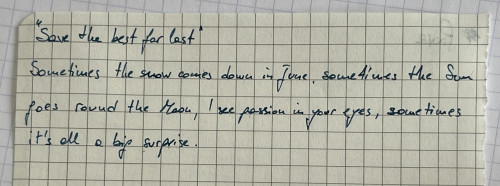 "Save the best for last"
Sometimes the snow comes down in June, sometimes the Sun
goes round the Moon, I see passion in your eyes, sometimes
it's all a big surprise.